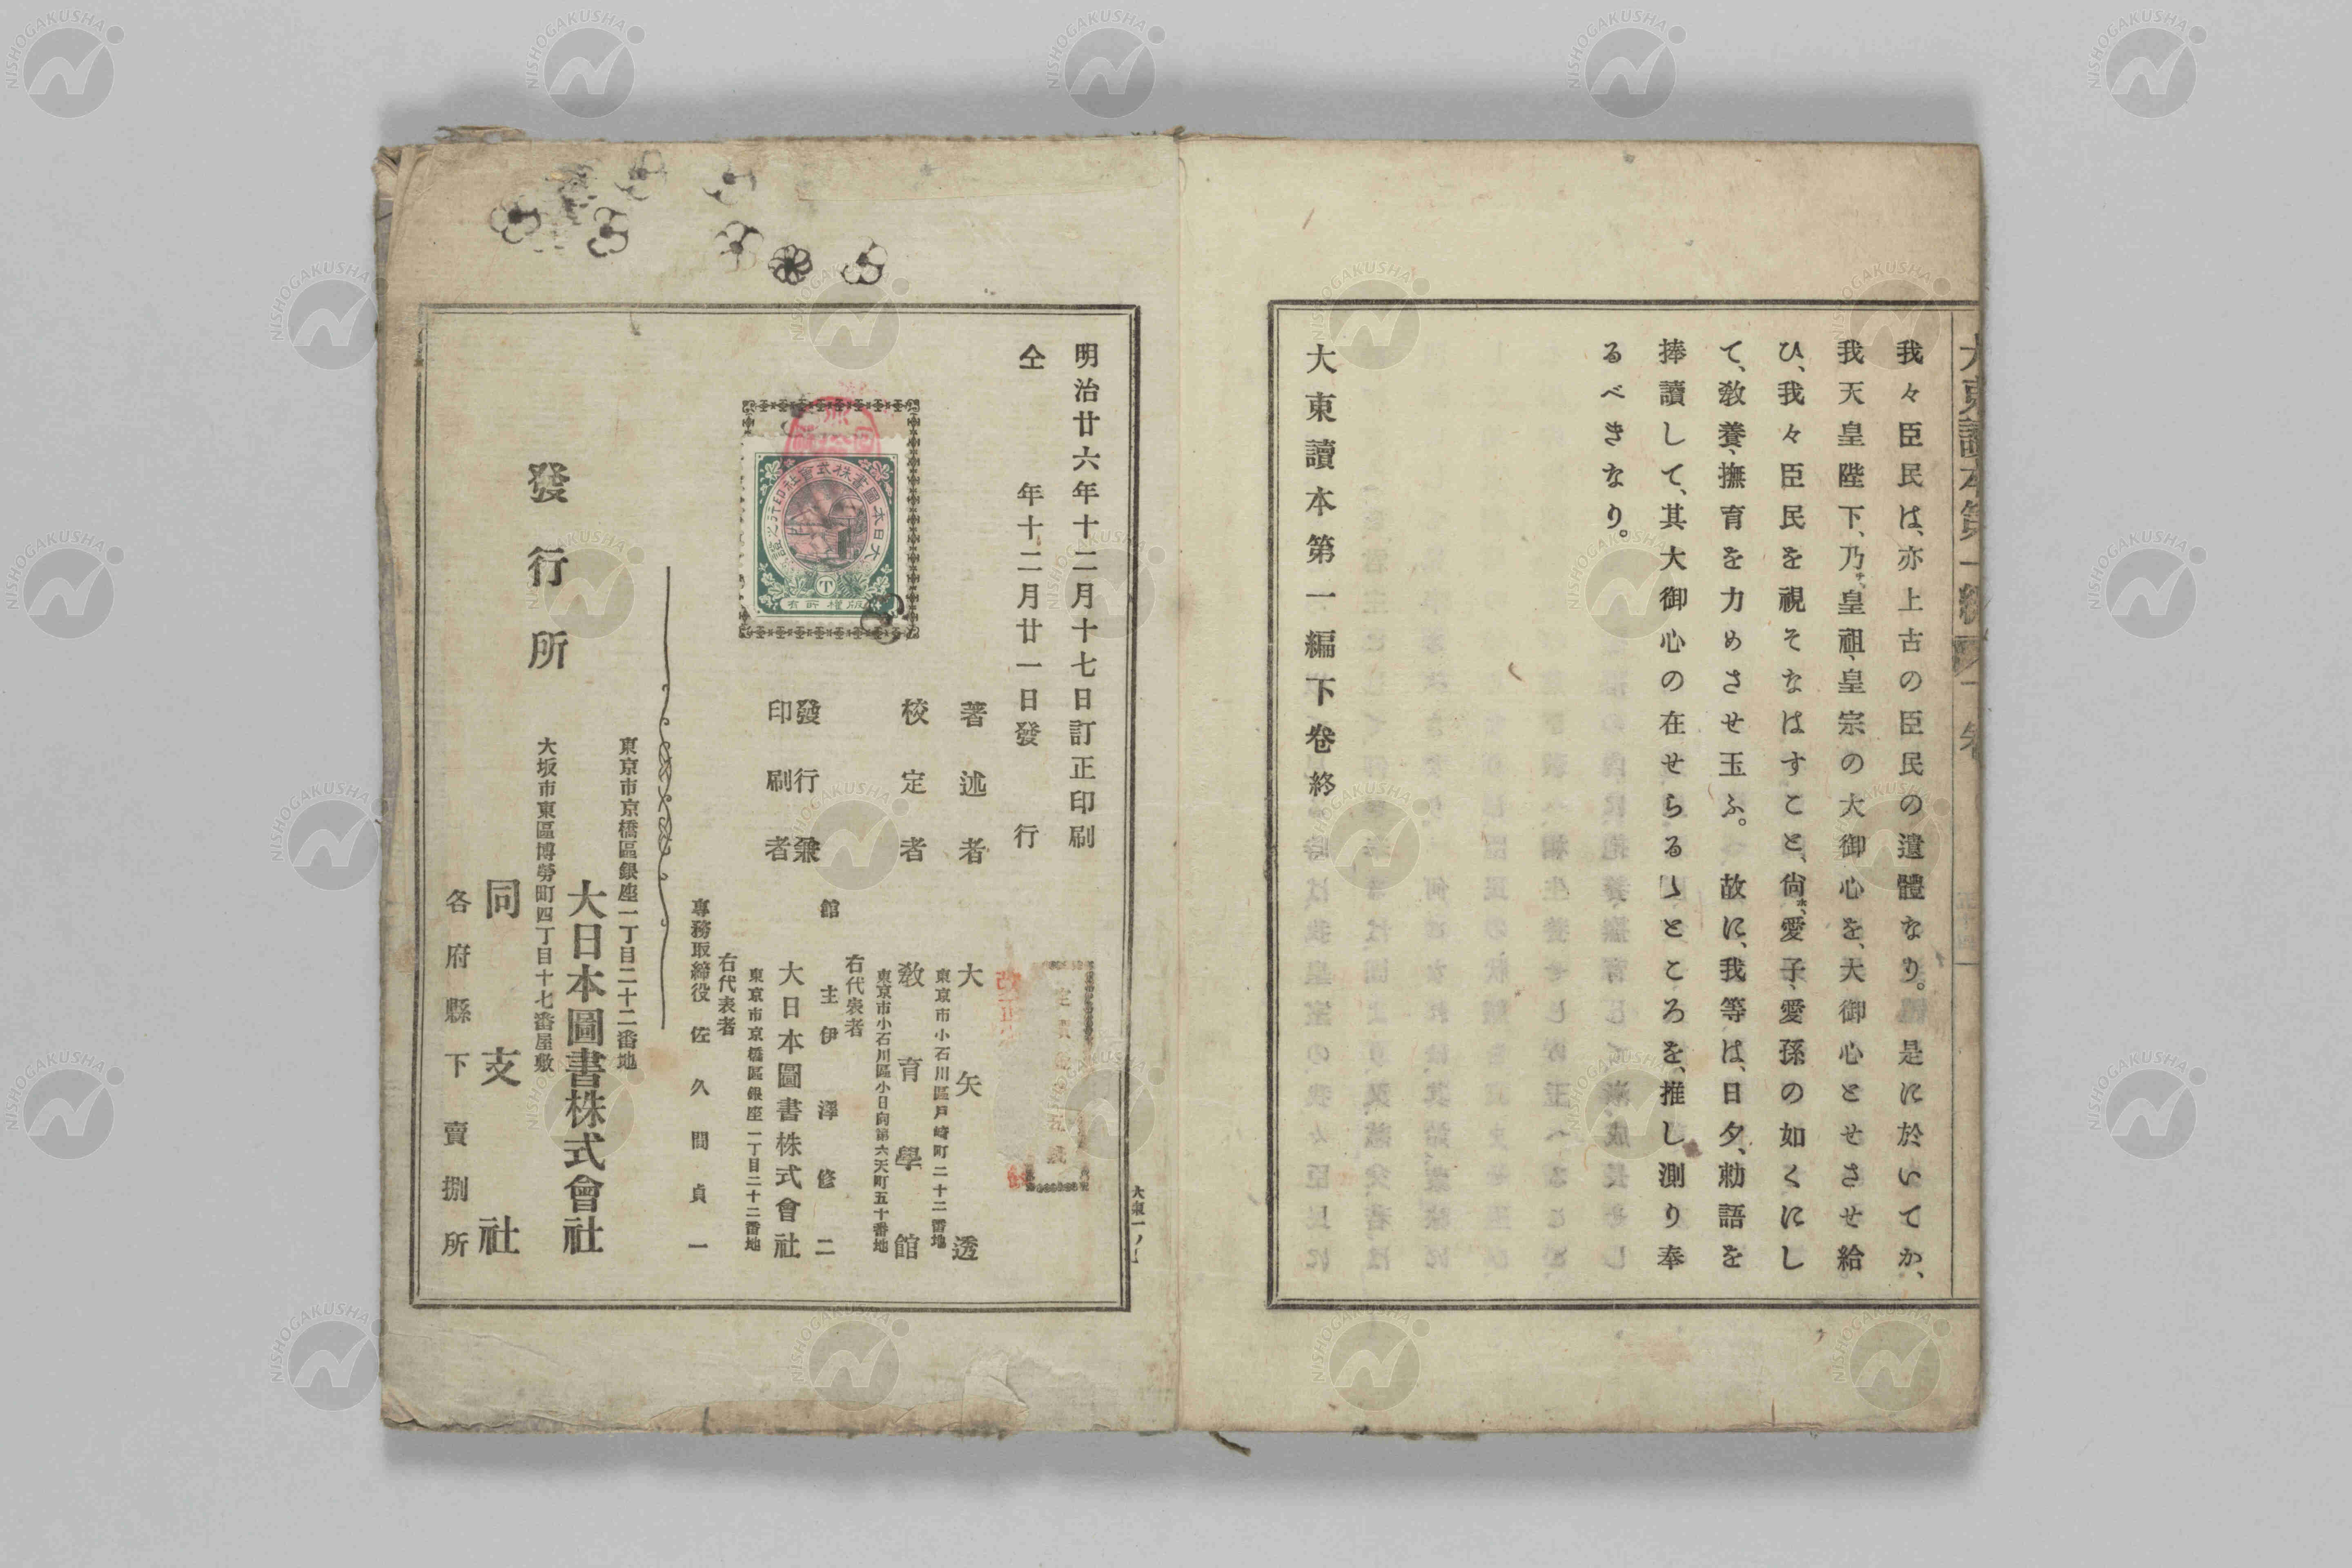 我々臣民は、亦上古の臣民の遺體なり。是に於いてか、
我天皇陛下、乃、皇祖、皇宗の大御心を、大御心とせさせ給
ひ、我々臣民を視そなはすこと、尙、愛子、愛孫の如くにし
て、敎養、撫育を力めさせ玉ふ。故に、我等は、日夕、勅語を
捧讀して、其大御心の在せらるゝところを、推し測り奉
るべきなり。
大東讀本第一編下卷 終
明治廿六年十二月十七日訂正印刷
仝 年十二月廿一日發行
著述者 大矢透
東京市小石川區戸崎町二十二番地
校定者 敎育學館
東京市小石川區小日向第六天町五十番地
右代表者
館主 伊澤修二
發行兼
印刷者 大日本圖書株式會社
東京市京橋區銀座一丁目二十二番地
右代表者
專務取締役 佐久間貞一
東京市京橋區銀座一丁目二十二番地
發行所 大日本圖書株式會社
大坂市東區博勞町四丁目十七番屋敷
同支社
各府縣下賣捌所
大日本圖書株式會社印行之證
版權所有
NISHOGAKUSHA